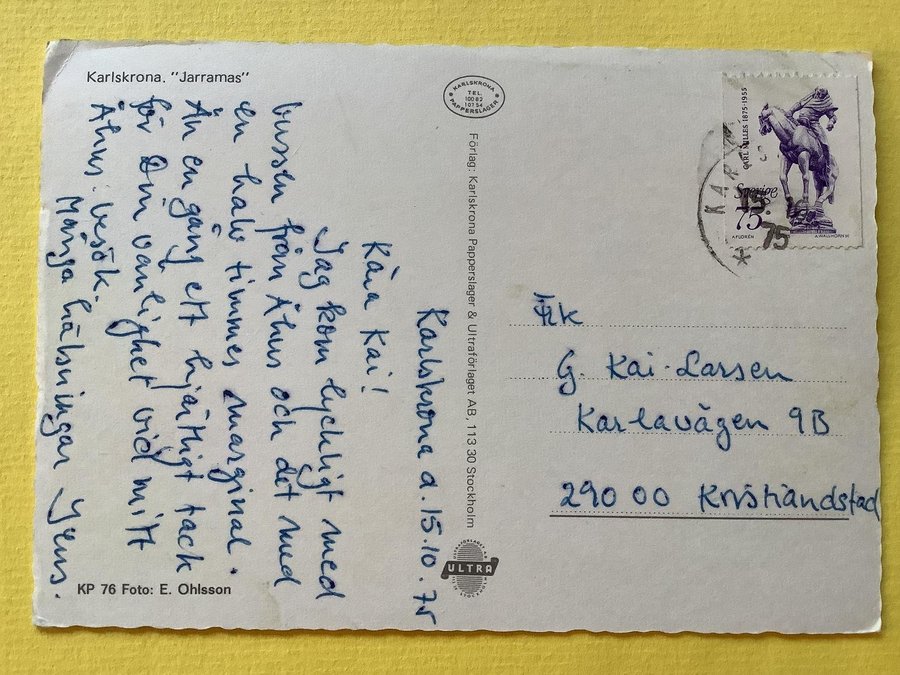 Karlskrona, "Jarramas"
Karlskrona d. 15.10.75
Kära Kai!
Jag kom lyckligt med
bussen från Åhus och det med
en halv timmes marginal.
Än en gång ett hjärtligt tack
för Din vänlighet vid mitt
Åhus-besök.
Många hälsningar Jens.
KP 76 Foto: E. Ohlsson
KARLSKRONA
TEL.
10082
10754
PAPPERSLAGER
Förlag: Karlskrona Papperslager & Ultraförlaget AB, 113 30 Stockholm
ULTRA
CARL MILLES 1875-1955
Sverige
75
KAR
15
75
Frk
G. Kai-Larsen
Karlavägen 9B
290 00 Kristiandstad